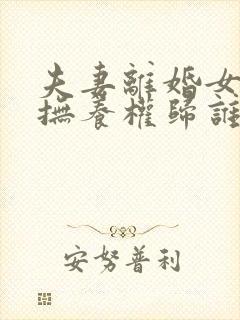 夫妻離婚女
撫養權歸誰
安努普利